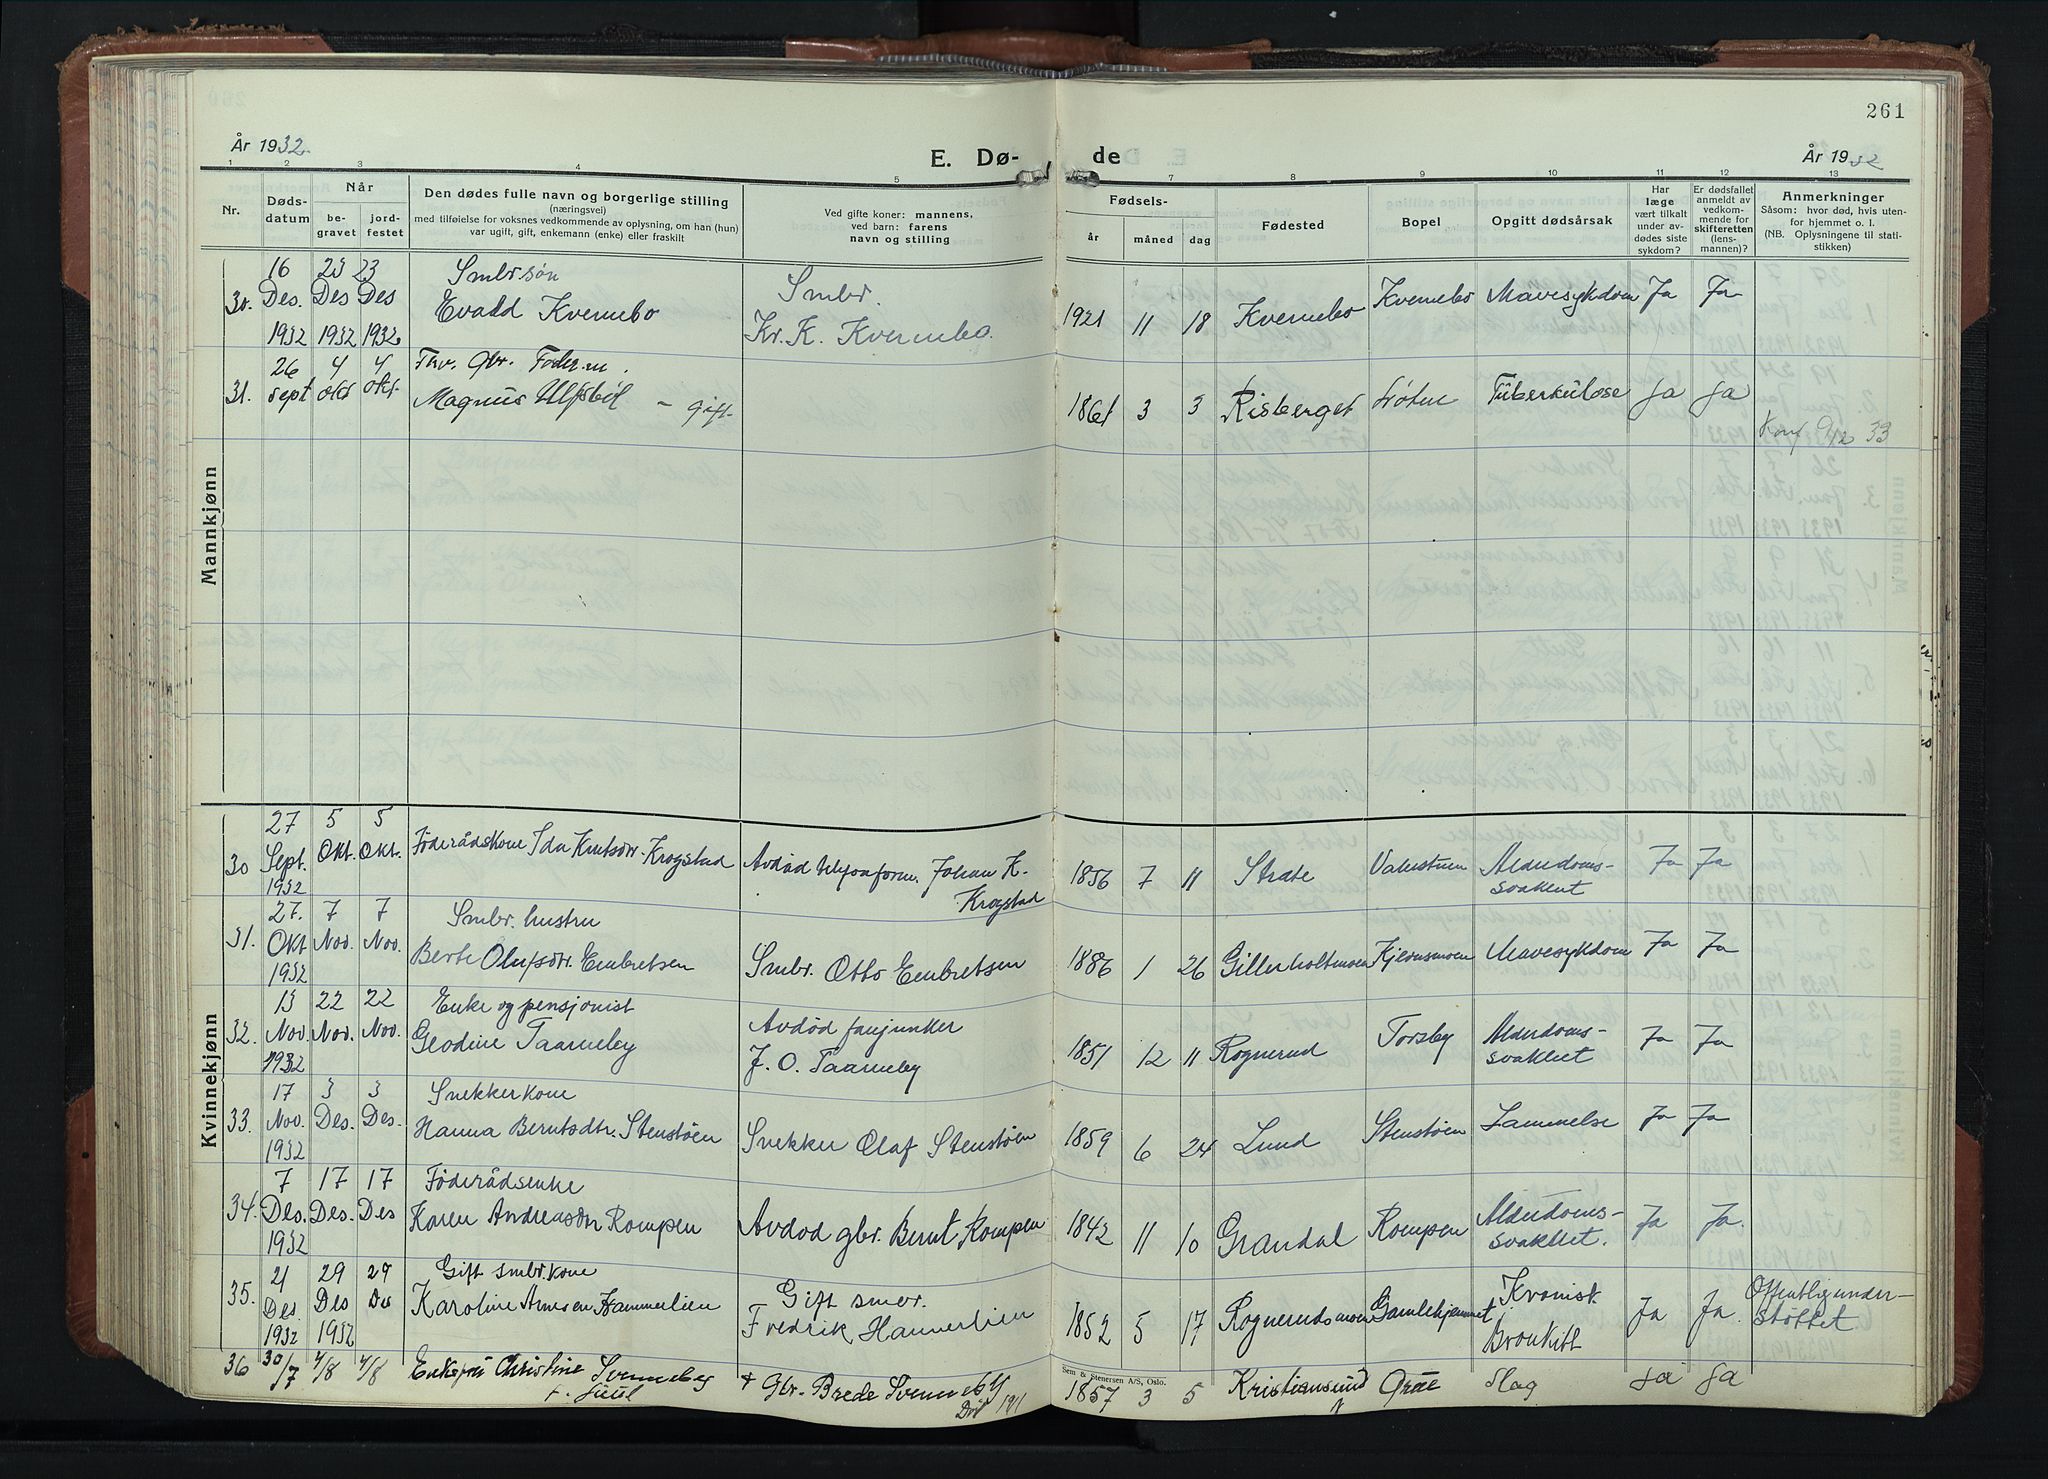 261
År 1932
E. Dø-
de
År 1932
1 2 3 4 5 7 8 9 10 11 12 13
Nr.
Døds-
datum
Når
be-
gravet
jord-
festet
Den dødes fulle navn og borgerlige stilling
(næringsvei)
med tilføielse for voksnes vedkommende av oplysning, om han (hun)
var ugift, gift, enkemann (enke) eller fraskilt
Ved gifte koner: mannens,
ved barn: farens
navn og stilling
Fødsels-
år måned dag
Fødested
Bopel
Opgitt dødsårsak
Har
læge
vært tilkalt
under av-
dødes siste
sykdom?
Er dødsfallet
anmeldt av
vedkom-
mende for
skifteretten
(lens-
mannen)?
Anmerkninger
Såsom: hvor død, hvis uten-
for hjemmet o. l.
(NB. Oplysningene til stati-
stikken)
Mannkjønn
16 23 23 Smbr søn
30. Des. Des Des Evald Kvernebo Smbr. Kvernebo Mavesykdom Ja Ja
1932 1932 1932 Kr. K. Kvernebo 1921 11 18 Kvernebo
26 4 4
31. sept okt okt. Magnus Ulfsbøl - gift 1861 3 3 Risberget Tuberkulose Ja Ja
Konf 9/12 33
Kvinnekjønn
27 5 5
30 Sept. Okt. Okt. Føderådskone Ida Knutsdtr. Krogstad Avdød Johan K. 1856 7 11 Strate Alderdoms- Ja Ja
1932 Krogstad svakhet
27. 7 7 Smbr. hustru
31. Okt Nov. Nov. Berte Olufsdtr. Embretsen Smbr. Otto Embretsen 1886 1 26 Gillerholtmoen Kjernsmoen Mavesykdom Ja Ja
1932
13 22 22 Enke og pensjonist
32. Nov. Nov. Nov. Geodine Taarneby Avdød fanjunker 1851 12 11 Rognerud Torsby Alderdoms- Ja Ja
1932 J. O. Taarneby svakhet
17 3 3 Snekkerkone
33. Nov. Des. Des. Hanna Berntsdtr. Stenstøen Snekker Olaf Stenstøen 1859 6 24 Lund Stenstøen Lammelse Ja Ja
1932
7 17 17 Føderådsenke
34. Des. Des. Des Karen Andreasdtr Rompen Avdød gbr. Bernt Rompen 1842 11 10 Grandal Rompen Alderdoms- Ja Ja.
1932 svakhet.
21 29 29 Gift smbr. kone
35. Des. Des Des Karoline Arnesen Hammerlien Gift smbr. 1852 5 17 Rognerudsmoen Gamlehjemmet Kronisk Ja Ja. Offentlig under-
1932 1932 Fredrik Hammerlien Bronkitt støttet
36 30/7 4/8 4/8 Enkefru Christine Svenneby + Gbr. Brede Svenneby 1857 3 5 Kristiansund Graae Slag Ja Ja
f. Juul Død 1911 N
Sem & Stenersen A/S, Oslo.